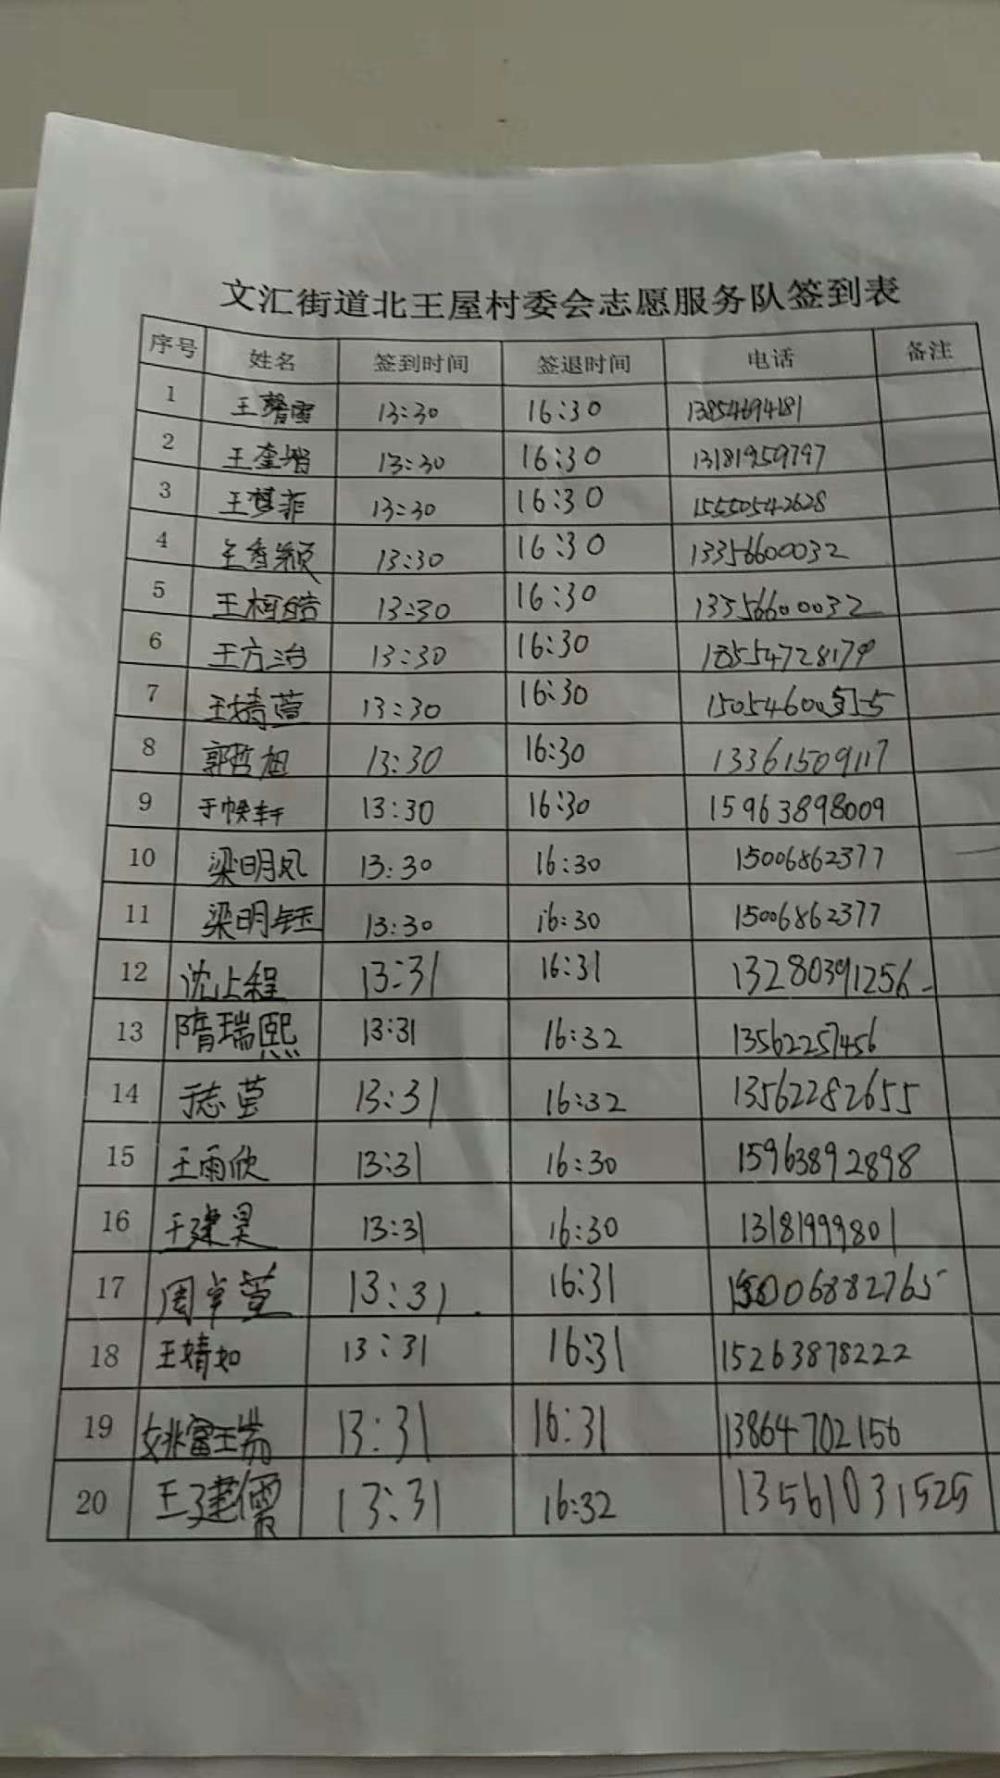 文汇街道北王屋村委会志愿服务队签到表
序号 姓名 签到时间 签退时间 电话 备注
1 王馨雪 13:30 16:30 13854694181
2 王奎瑞 13:30 16:30 13181959797
3 王梦菲 13:30 16:30 15550542628
4 王香颖 13:30 16:30 13356600032
5 王柯皓 13:30 16:30 13356600032
6 王方治 13:30 16:30 18554728179
7 王婧萱 13:30 16:30
8 郭哲旭 13:30 16:30 13361509117
9 13:30 16:30 15963898009
10 梁明凤 13:30 16:30 15006862377
11 梁明钰 13:30 16:30 15006862377
12 沈上程 13:31 16:31 13280391256
13 隋瑞熙 13:31 16:32 13562257456
14 于志萱 13:31 16:32 13562282655
15 王雨欣 13:31 16:30 15963892898
16 王建昊 13:31 16:30 13181999801
17 周卓萱 13:31 16:31 15006882765
18 王婧如 13:31 16:31 15263878222
19 姚富瑞 13:31 16:31 13864702156
20 王建儒 13:31 16:32 13561031525